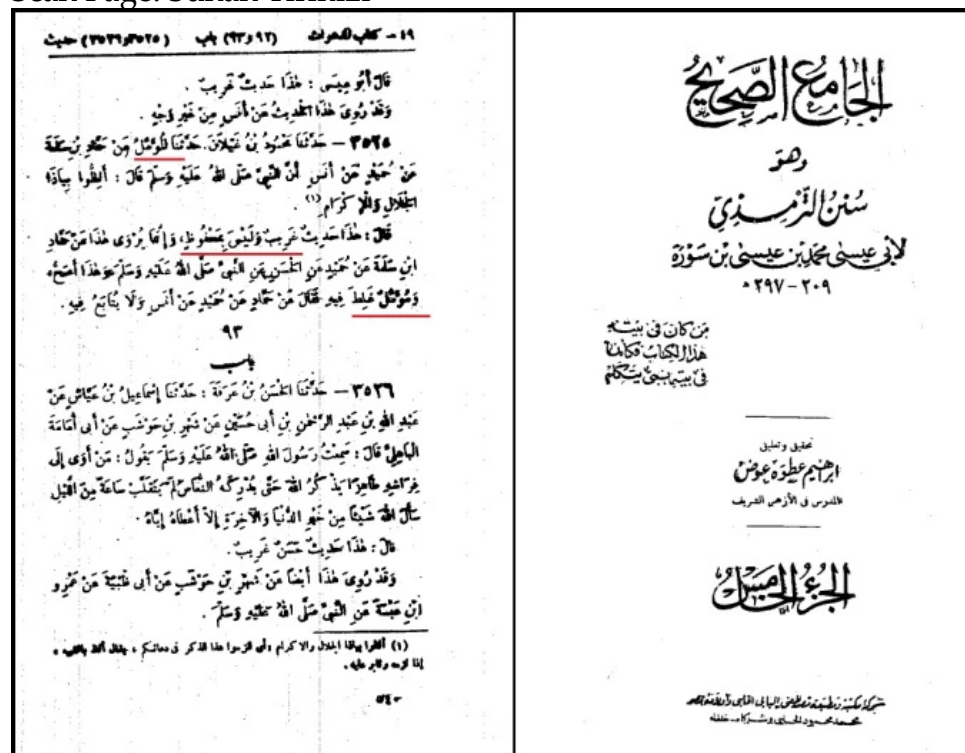 Scan Page: Sunan Tirmizi
٤٩ - كتاب الدعوات (٩٢ و ٩٣) باب (٣٥٢٥ و ٣٥٢٦) حديث
قَالَ أَبُو عِيسَى : هٰذَا حَدِيثٌ غَرِيبٌ .
وَقَدْ رُوِيَ هٰذَا الْحَدِيثُ عَنْ أَنَسٍ مِنْ غَيْرِ وَجْهٍ .
٣٥٢٥ – حَدَّثَنَا مَحْمُودُ بْنُ غَيْلَانَ. حَدَّثَنَا الْمُؤَمَّلُ عَنْ حَمَّادِ بْنِ سَلَمَةَ
عَنْ حُمَيْدٍ عَنْ أَنَسٍ أَنَّ النَّبِيَّ صَلَّى اللهُ عَلَيْهِ وَسَلَّمَ قَالَ : أَلِظُّوا بِيَاذَا
الْجَلَالِ وَالْإِكْرَامِ (١) .
قَالَ : هٰذَا حَدِيثٌ غَرِيبٌ وَلَيْسَ بِمَحْفُوظٍ، وَإِنَّمَا يُرْوَى هٰذَا عَنْ حَمَّادِ
ابْنِ سَلَمَةَ عَنْ حُمَيْدٍ عَنِ الْحَسَنِ عَنِ النَّبِيِّ صَلَّى اللهُ عَلَيْهِ وَسَلَّمَ وَهٰذَا أَصَحُّ،
وَمُؤَمَّلٌ غَلِطَ فِيهِ فَقَالَ عَنْ حَمَّادٍ عَنْ حُمَيْدٍ عَنْ أَنَسٍ وَلَا يُتَابَعُ فِيهِ .
٩٣
باب
٣٥٢٦ – حَدَّثَنَا الْحَسَنُ بْنُ عَرَفَةَ : حَدَّثَنَا إِسْمَاعِيلُ بْنُ عَيَّاشٍ عَنْ
عَبْدِ اللهِ بْنِ عَبْدِ الرَّحْمٰنِ بْنِ أَبِي حُسَيْنٍ عَنْ شَهْرِ بْنِ حَوْشَبٍ عَنْ أَبِي أُمَامَةَ
الْبَاهِلِيِّ قَالَ : سَمِعْتُ رَسُولَ اللهِ صَلَّى اللهُ عَلَيْهِ وَسَلَّمَ يَقُولُ : مَنْ أَوَى إِلَى
فِرَاشِهِ طَاهِرًا يَذْكُرُ اللهَ حَتَّى يُدْرِكَهُ النُّعَاسُ لَمْ يَتَقَلَّبْ سَاعَةً مِنَ اللَّيْلِ
سَأَلَ اللهَ شَيْئًا مِنْ خَيْرِ الدُّنْيَا وَالْآخِرَةِ إِلَّا أَعْطَاهُ إِيَّاهُ .
قَالَ : هٰذَا حَدِيثٌ حَسَنٌ غَرِيبٌ .
وَقَدْ رُوِيَ هٰذَا أَيْضًا عَنْ شَهْرِ بْنِ حَوْشَبٍ عَنْ أَبِي ظَبْيَةَ عَنْ عَمْرِو
ابْنِ عَبَسَةَ عَنِ النَّبِيِّ صَلَّى اللهُ عَلَيْهِ وَسَلَّمَ .
(١) ألظوا بياذا الجلال والاكرام أى الزموا هذا الذكر فى دعائكم ، يقال ألظ بالشىء ،
إذا لزمه وثابر عليه .
٥٤٠
الجامع الصحيح
وهو
سنن الترمذي
لأبي عيسى محمد بن عيسى بن سورة
٢٠٩ - ٢٩٧ هـ
من كان فى بيته
هذا الكتاب فكأنما
فى بيته نبي يتكلم
تحقيق وتعليق
ابراهيم عطوه عوض
المدرس فى الأزهر الشريف
الجزء الخامس
شركة مكتبة ومطبعة مصطفى البابى الحلبى وأولاده بمصر
محمد محمود الحلبى وشركاه - خلفاء